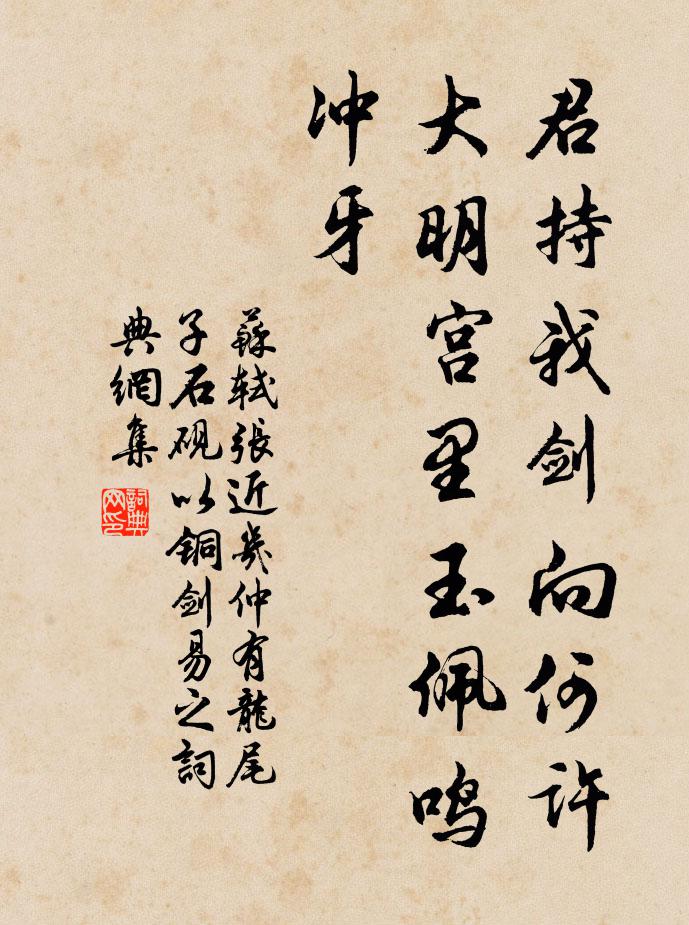 君持我剑向何许
大明宫里玉佩鸣
冲牙
蘇軾張近幾仲有龍尾
子石硯以銅剑易之詞
典網集
詞典
网印